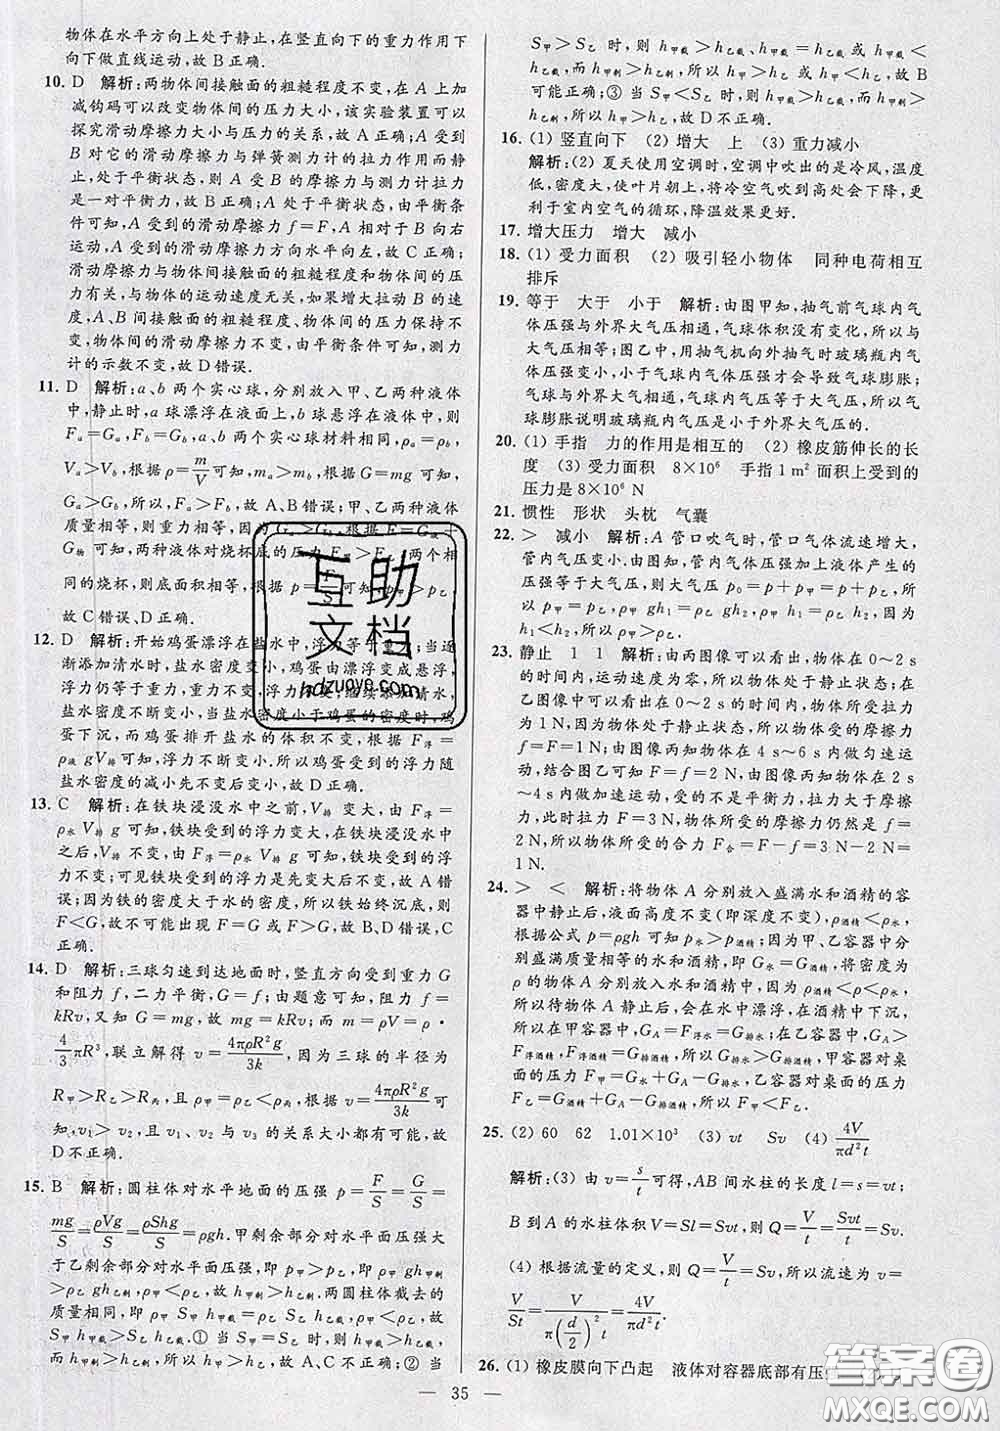 物体在水平方向上处于静止,在竖直向下的重力作用下
向下做直线运动,故 B 正确.
10. D 解析:两物体间接触面的粗糙程度不变,在 A 上加
减钩码可以改变物体间的压力大小,该实验装置可以
探究滑动摩擦力大小与压力的关系,故 A 正确;A 受到
B 对它的滑动摩擦力与弹簧测力计的拉力作用而静
止,处于平衡状态,则 A 受 B 的摩擦力与测力计拉力
是一对平衡力,故 B 正确;A 处于平衡状态,由平衡条
件可知,A 受到的滑动摩擦力 f=F,A 相对于 B 向右
运动,A 受到的滑动摩擦力方向水平向左,故 C 正确;
滑动摩擦力与物体间接触面的粗糙程度和物体间的压
力有关,与物体的运动速度无关,如果增大拉力 B 的速
度,A、B 间接触面的粗糙程度、物体间的压力保持不
变,物体间的滑动摩擦力不变,由平衡条件可知,测力
计的示数不变,故 D 错误.
11. D 解析:a、b 两个实心球,分别放入甲、乙两种液体
中,静止时,a 球漂浮在液面上,b 球悬浮在液体中,则
Fa=Ga,Fb=Gb,a、b 两个实心球材料相同,ρa=ρb,
Va>Vb,根据 ρ=m/V 可知,ma>mb,根据 G=mg 可知,
Ga>Gb,所以,Fa>Fb,故 A、B 错误;甲、乙两种液体
质量相等,则重力相等,因为 Ga>Gb,根据 F=G液+
G物 可知,两种液体对烧杯底的压力 F甲>F乙,两个相
同的烧杯,则底面积相等,根据 p=F/S 可知,p甲>p乙,
故 C 错误、D 正确.
12. D 解析:开始鸡蛋漂浮在盐水中,浮力等于重力;当逐
渐添加清水时,盐水密度变小,鸡蛋由漂浮变成悬浮,
浮力仍等于重力,重力不变,浮力不变;继续添加清水,盐
水密度不断变小,当盐水密度小于鸡蛋的密度时,鸡
蛋下沉,而鸡蛋排开盐水的体积不变,根据 F浮=
ρ液 V排 g 可知,浮力不断变小.所以鸡蛋受到的浮力随
盐水密度的减小先不变后变小,故 D 正确.
13. C 解析:在铁块浸没水中之前,V排 变大,由 F浮=
ρ水 V排 g 可知,铁块受到的浮力变大,在铁块浸没水中
之后,V排 不变,由 F浮=ρ水 V排 g 可知,铁块受到的浮
力不变;可见铁块受到的浮力是先变大后不变,故 A 错
误;因为铁的密度大于水的密度,所以铁块始终沉底,则
F<G,故不可能出现 F=G 或 F>G,故 B、D 错误,C
正确.
14. D 解析:三球匀速到达地面时,竖直方向受到重力 G
和阻力 f,二力平衡,G=f;由题意可知,阻力 f=
kRv,又知 G=mg,故 mg=kRv;而 m=ρV=ρ·
4/3πR³,联立解得 v=4πρR²g/3k,因为三球的半径为
R甲>R乙>R丙,且 ρ甲=ρ乙<ρ丙,根据 v=4πρR²g/3k 可
知,v₁>v₂,且 v₁、v₂ 与 v₃ 的关系大小都有可能,故
D 不正确.
15. B 解析:圆柱体对水平地面的压强 p=F/S=G/S=
mg/S=ρVg/S=ρShg/S=ρgh.甲剩余部分对水平面压强大
于乙剩余部分对水平面压强,即 p甲>p乙,即 ρ甲 gh甲剩
>ρ乙 gh乙剩,ρ甲<ρ乙,故 h甲剩>h乙剩.两圆柱体截去的
质量相同,即 m甲=m乙,即 ρ甲 S甲 h甲截=ρ乙 S乙 h乙截,
故 S甲 h甲截>S乙 h乙截.① 当 S甲=S乙 时,则 h甲截>h乙截,
而 h甲剩>h乙剩,所以 h甲>h乙,故 A、C 不正确;② 当
S甲>S乙 时,则 h甲截>h乙截、h甲截=h乙截 或 h甲截<
h乙截,而 h甲剩>h乙剩,所以 h甲>h乙 或 h甲<h乙,故 B
可能正确;③ 当 S甲<S乙 时,则 h甲截>h乙截,而 h甲剩>
h乙剩,所以 h甲>h乙,故 D 不正确.
16. (1) 竖直向下 (2) 增大 上 (3) 重力减小
解析:(2) 夏天使用空调时,空调中吹出的是冷风,温度
低,密度大,使叶片朝上,将冷空气吹到高处会下降,更
利于室内空气的循环,降温效果更好.
17. 增大压力 增大 减小
18. (1) 受力面积 (2) 吸引轻小物体 同种电荷相互
排斥
19. 等于 大于 小于 解析:由图甲知,抽气前气球内气
体压强与外界大气压相通,气球体积没有变化,所以与
大气压相等;图乙中,用抽气机向外抽气时玻璃瓶内气
体压强变小,气球内气体压强才会导致气球膨胀;
气球与大气相通,气球内气压与大气压相等,所以,气
球膨胀说明玻璃瓶内气压是小于外界大气压的.
20. (1) 手指 力的作用是相互的 (2) 橡皮筋伸长的长
度 (3) 受力面积 8×10⁶ 手指 1 m² 面积上受到的
压力是 8×10⁶ N
21. 惯性 形状 头枕 气囊
22. > 减小 解析:A 管口吹气时,管口气体流速增大,
管内气压变小.由图知,管内气体压强加上液体产生的
压强等于大气压强,则大气压 p₀=p+p甲=p+p乙,
所以 p甲=p乙,ρ甲 gh₁=ρ乙 gh₂,ρ甲 h₁=ρ乙 h₂,因为
h₁<h₂,所以 ρ甲>ρ乙.
23. 静止 1 1 解析:由两图像可以看出,物体在 0~2 s
的时间内,运动速度为零,表示物体处于静止状态;在
乙图像可以看出,在 0~2 s 的时间内,物体所受拉力
为 1 N,因为物体处于静止状态,所以受的摩擦力
f=F=1 N;由图像丙知物体在 4 s~6 s 内做匀速运
动,结合图乙可知 F=f=2 N,由图像丙知物体在 2 s
~4 s 内做加速运动,受的不是平衡力,拉力大于摩擦
力,此时拉力 F=3 N,物体所受的摩擦力仍然是 f=
2 N,所以物体所受的合力 F合=F-f=3 N-2 N=
1 N.
24. > < 解析:将物体 A 分别放入盛满水和酒精的容
器中静止后,液面高度不变(即深度不变),ρ酒精<ρ水,
根据公式 p=ρgh 可知 p水>p酒精;因为甲、乙容器分别
盛满质量相等的水和酒精,即 G水=G酒精,将密度为
ρ 的物体 A 分别放入水和酒精中,因为 ρ酒精<ρ<ρ水,
所以待物体 A 静止后,会在水中漂浮,在酒精中下沉,
所以在甲容器中,GA=F浮水=G排水;在乙容器中,GA>
F浮酒精=G排酒精,所以 G排水>G排酒精,甲容器对桌
面的压力 F甲=G水+GA-G排水,乙容器对桌面的压力
F乙=G酒精+GA-G排酒精,所以 F甲<F乙.
25. (2) 60 62 1.01×10³ (3) vt Sv (4) 4V/πd²t
解析:(3) 由 v=s/t 可得,AB 间水柱的长度 l=s=vt;
B 到 A 的水柱体积 V=Sl=Svt,则 Q=V/t=Svt/t=Sv.
(4) 根据流量的定义,则 Q=V/t=Sv,所以流速为 v=
V/St=V/π(d/2)²t=4V/πd²t.
26. (1) 橡皮膜向下凸起 液体对容器底部有压
— 35 —
互助
文档
hdzuoye.com
答案圈
MXQE.COM